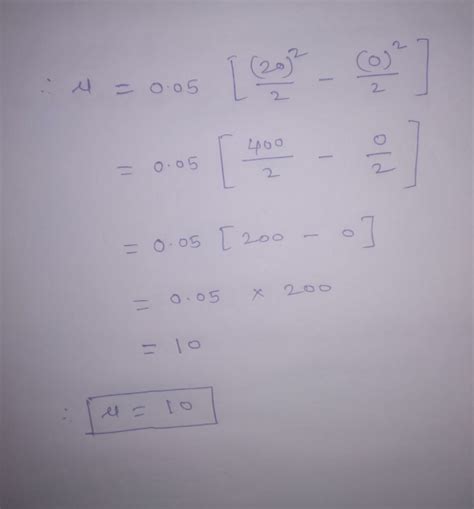 ∴ μ = 0.05 [ (20)²/2 - (0)²/2 ]
= 0.05 [ 400/2 - 0/2 ]
= 0.05 [ 200 - 0 ]
= 0.05 × 200
= 10
∴ μ = 10